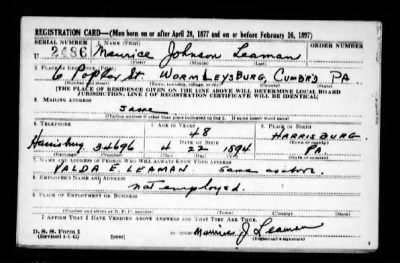 REGISTRATION CARD—(Men born on or after April 28, 1877 and on or before February 16, 1897)
SERIAL NUMBER 1. NAME (Print) ORDER NUMBER
U 2486 Maurice Johnson Leaman
(First) (Middle) (Last)
2. PLACE OF RESIDENCE (Print)
6 Poplar St WORMLEYSBURG, CUMB'D PA
[THE PLACE OF RESIDENCE GIVEN ON THE LINE ABOVE WILL DETERMINE LOCAL BOARD
JURISDICTION; LINE 2 OF REGISTRATION CERTIFICATE WILL BE IDENTICAL]
3. MAILING ADDRESS
same
[Mailing address if other than place indicated on line 2. If same insert word same]
4. TELEPHONE 5. AGE IN YEARS 6. PLACE OF BIRTH
48 HARRISBURG
DATE OF BIRTH (Town or county)
Harrisburg 34696 4 22 1894 PA.
(Exchange) (Number) (Mo.) (Day) (Yr.) (State or country)
7. NAME AND ADDRESS OF PERSON WHO WILL ALWAYS KNOW YOUR ADDRESS
VALDA E. LEAMAN same as above
8. EMPLOYER'S NAME AND ADDRESS
not employed.
9. PLACE OF EMPLOYMENT OR BUSINESS
(Number and street or R. F. D. number) (Town) (County) (State)
I AFFIRM THAT I HAVE VERIFIED ABOVE ANSWERS AND THAT THEY ARE TRUE.
D. S. S. Form 1
(Revised 4-1-42) (over) Maurice J. Leaman
(Registrant's signature)